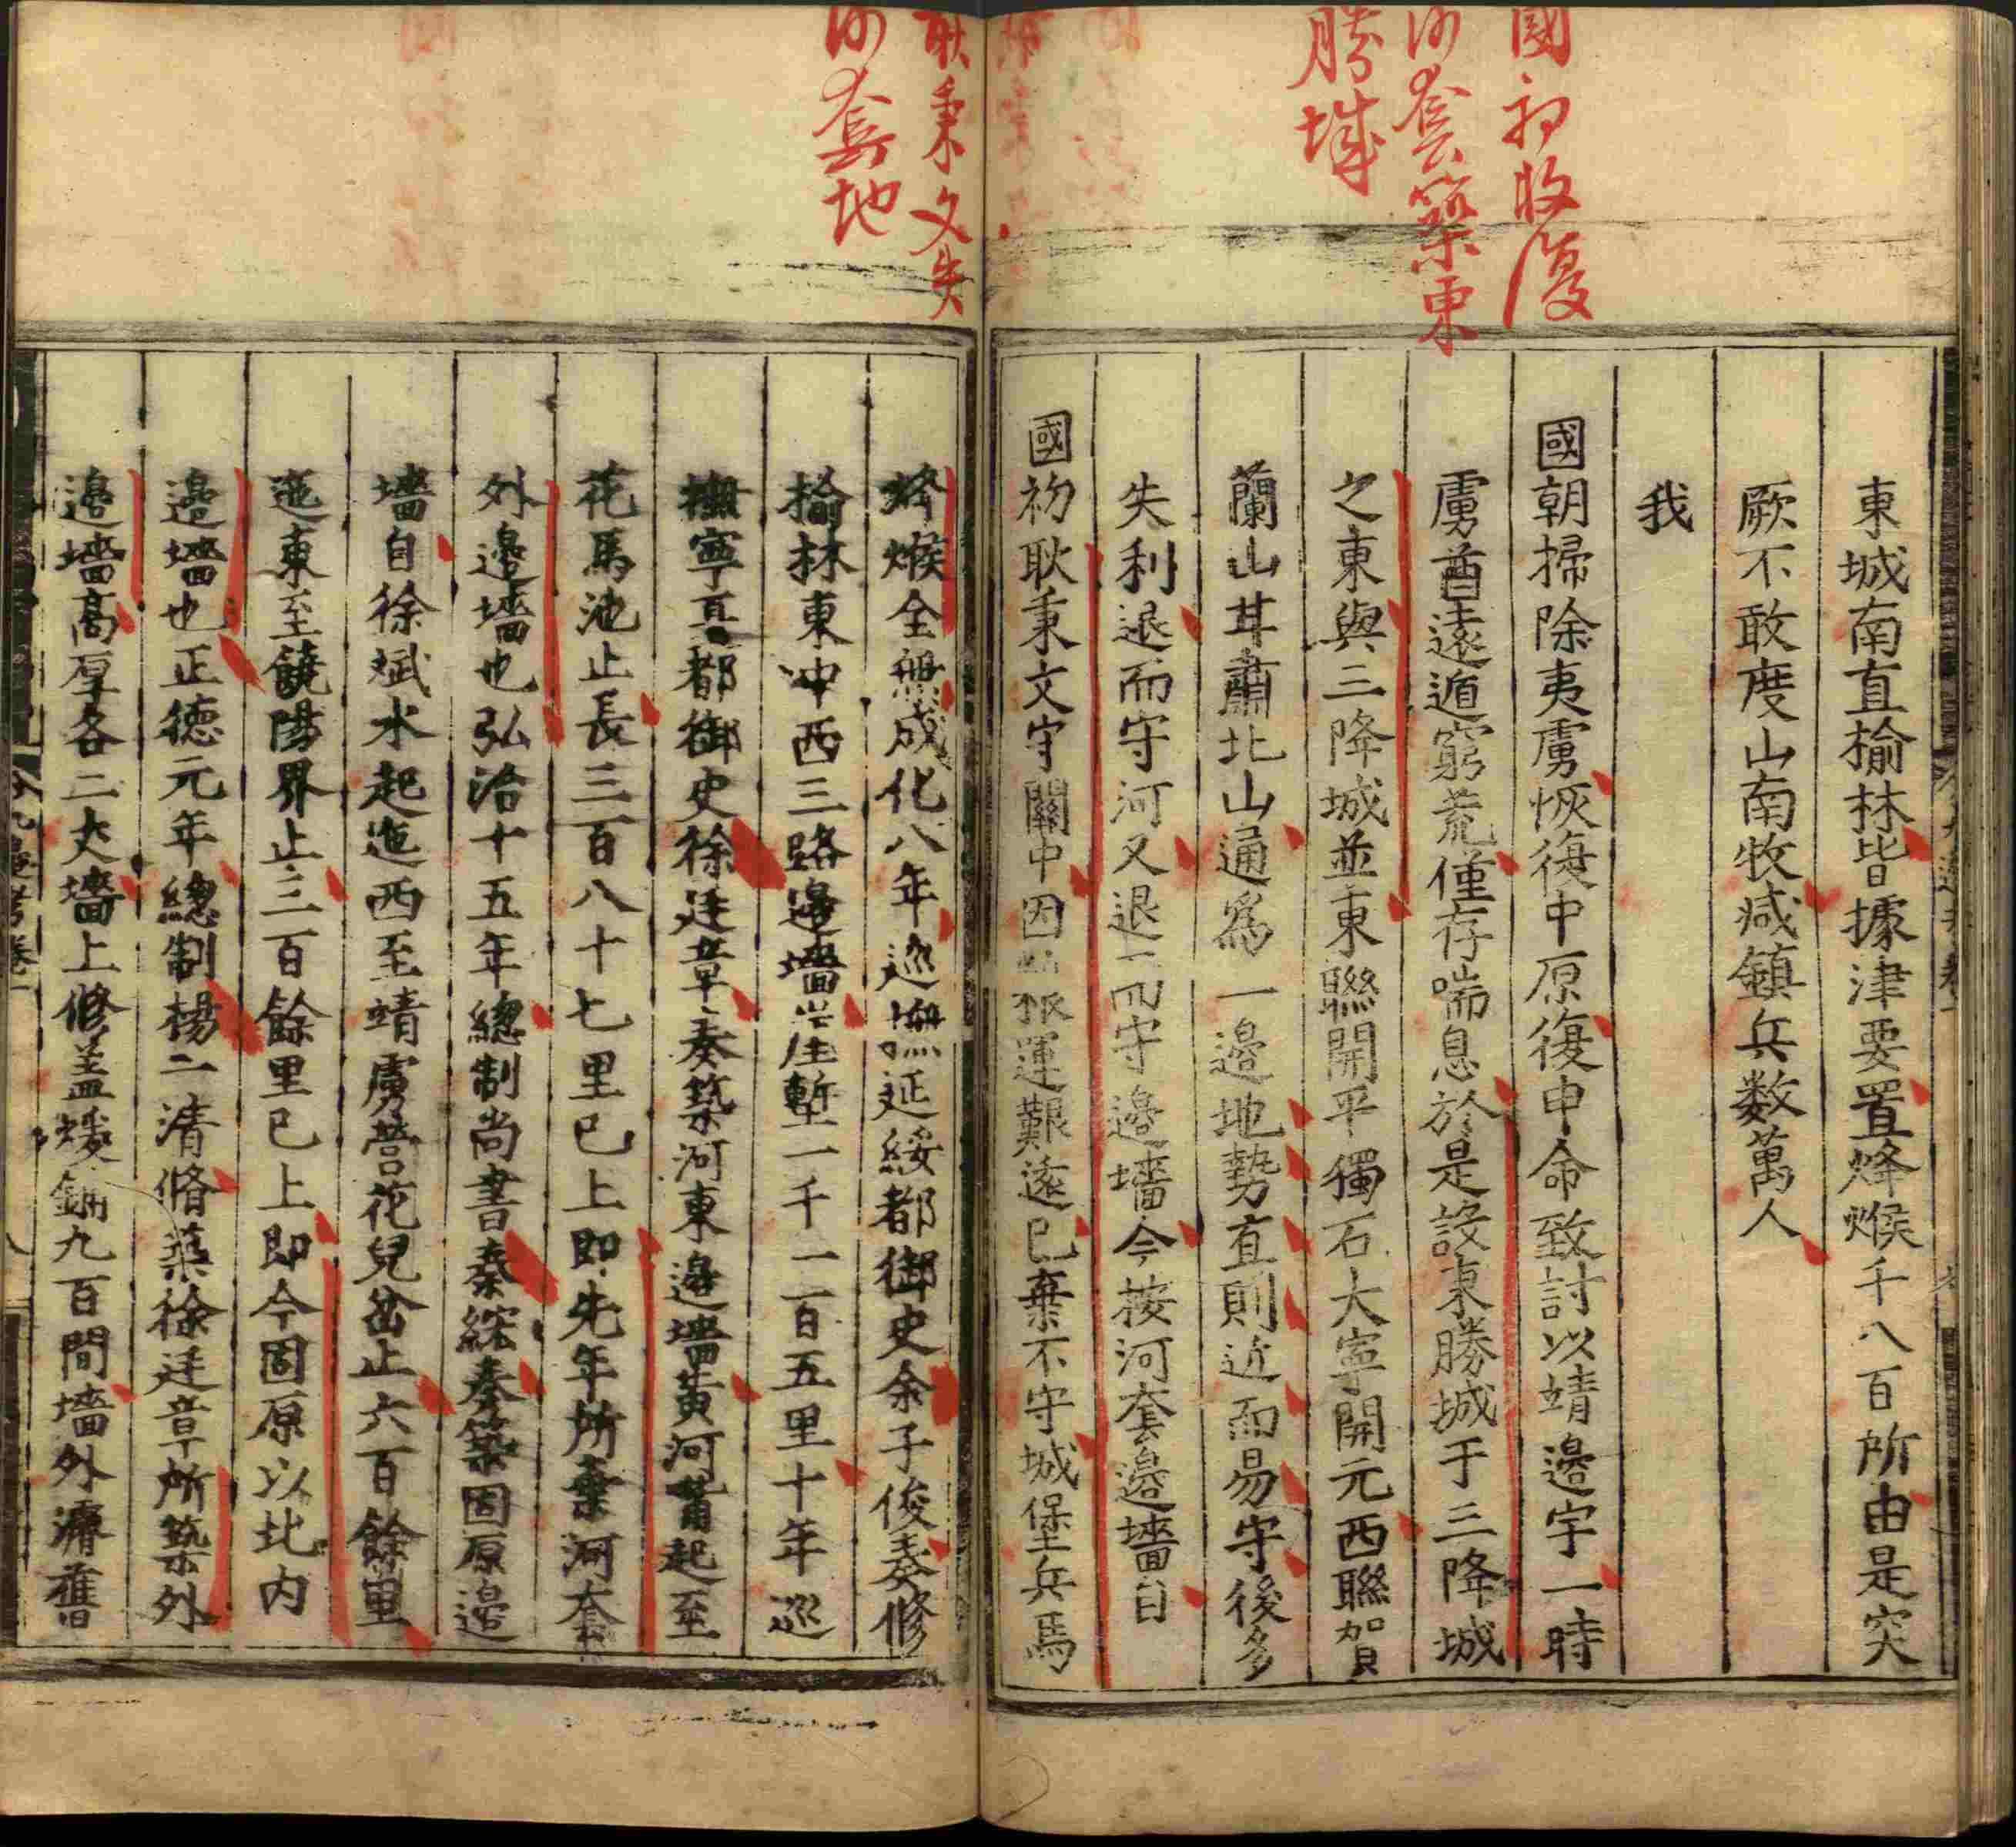 國初收復
河套築東
勝城
東城南直榆林皆據津要置烽堠千八百所由是突
厥不敢度山南牧减鎮兵数萬人
我
國朝掃除夷虜恢復中原復申命致討以靖邊宇一時
虜酋遠遁窮荒僅存喘息於是設東勝城于三降城
之東與三降城並東聯開平獨石大寧開元西聯賀
蘭山甘肅北山通為一邊地勢直則近而易守後多
失利退而守河又退而守邊墻今按河套邊墻自
國初耿秉文守關中因粮運艱遠已棄不守城堡兵馬
耿秉文失
河套地
烽堠全無成化八年巡撫延綏都御史余子俊奏修
榆林東中西三路邊墻崖塹一千一百五里十年巡
撫寧夏都御史徐廷章奏築河東邊墻黃河嘴起至
花馬池止長三百八十七里已上即先年所棄河套
外邊墻也弘治十五年總制尚書秦紘奏築固原邊
墻自徐斌水起迤西至靖虜營花兒岔止六百餘里
迤東至饒陽界止三百餘里已上即今固原以北内
邊墻也正德元年總制楊一清脩築徐廷章所築外
邊墻高厚各二丈墻上修盖煖鋪九百間墻外濬舊